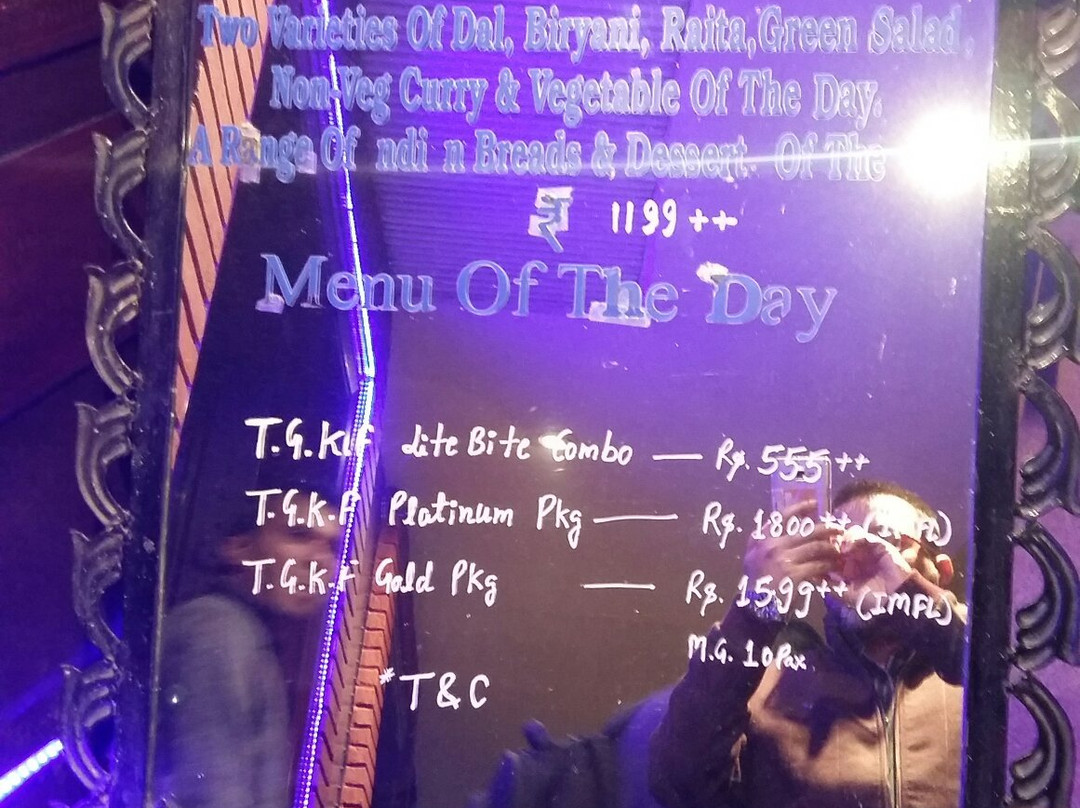 Two Varieties Of Dal, Biryani, Raita, Green Salad,
Non-Veg Curry & Vegetable Of The Day.
A Range Of ndi n Breads & Dessert Of The
₹ 1199 ++
Menu Of The Day
T.G.K.F Lite Bite Combo — Rs. 555 ++
T.G.K.F Platinum Pkg — Rs. 1800 ++ (IMFL)
T.G.K.F Gold Pkg — Rs. 1599 ++ (IMFL)
M.G. 10 Pax.
*T&C